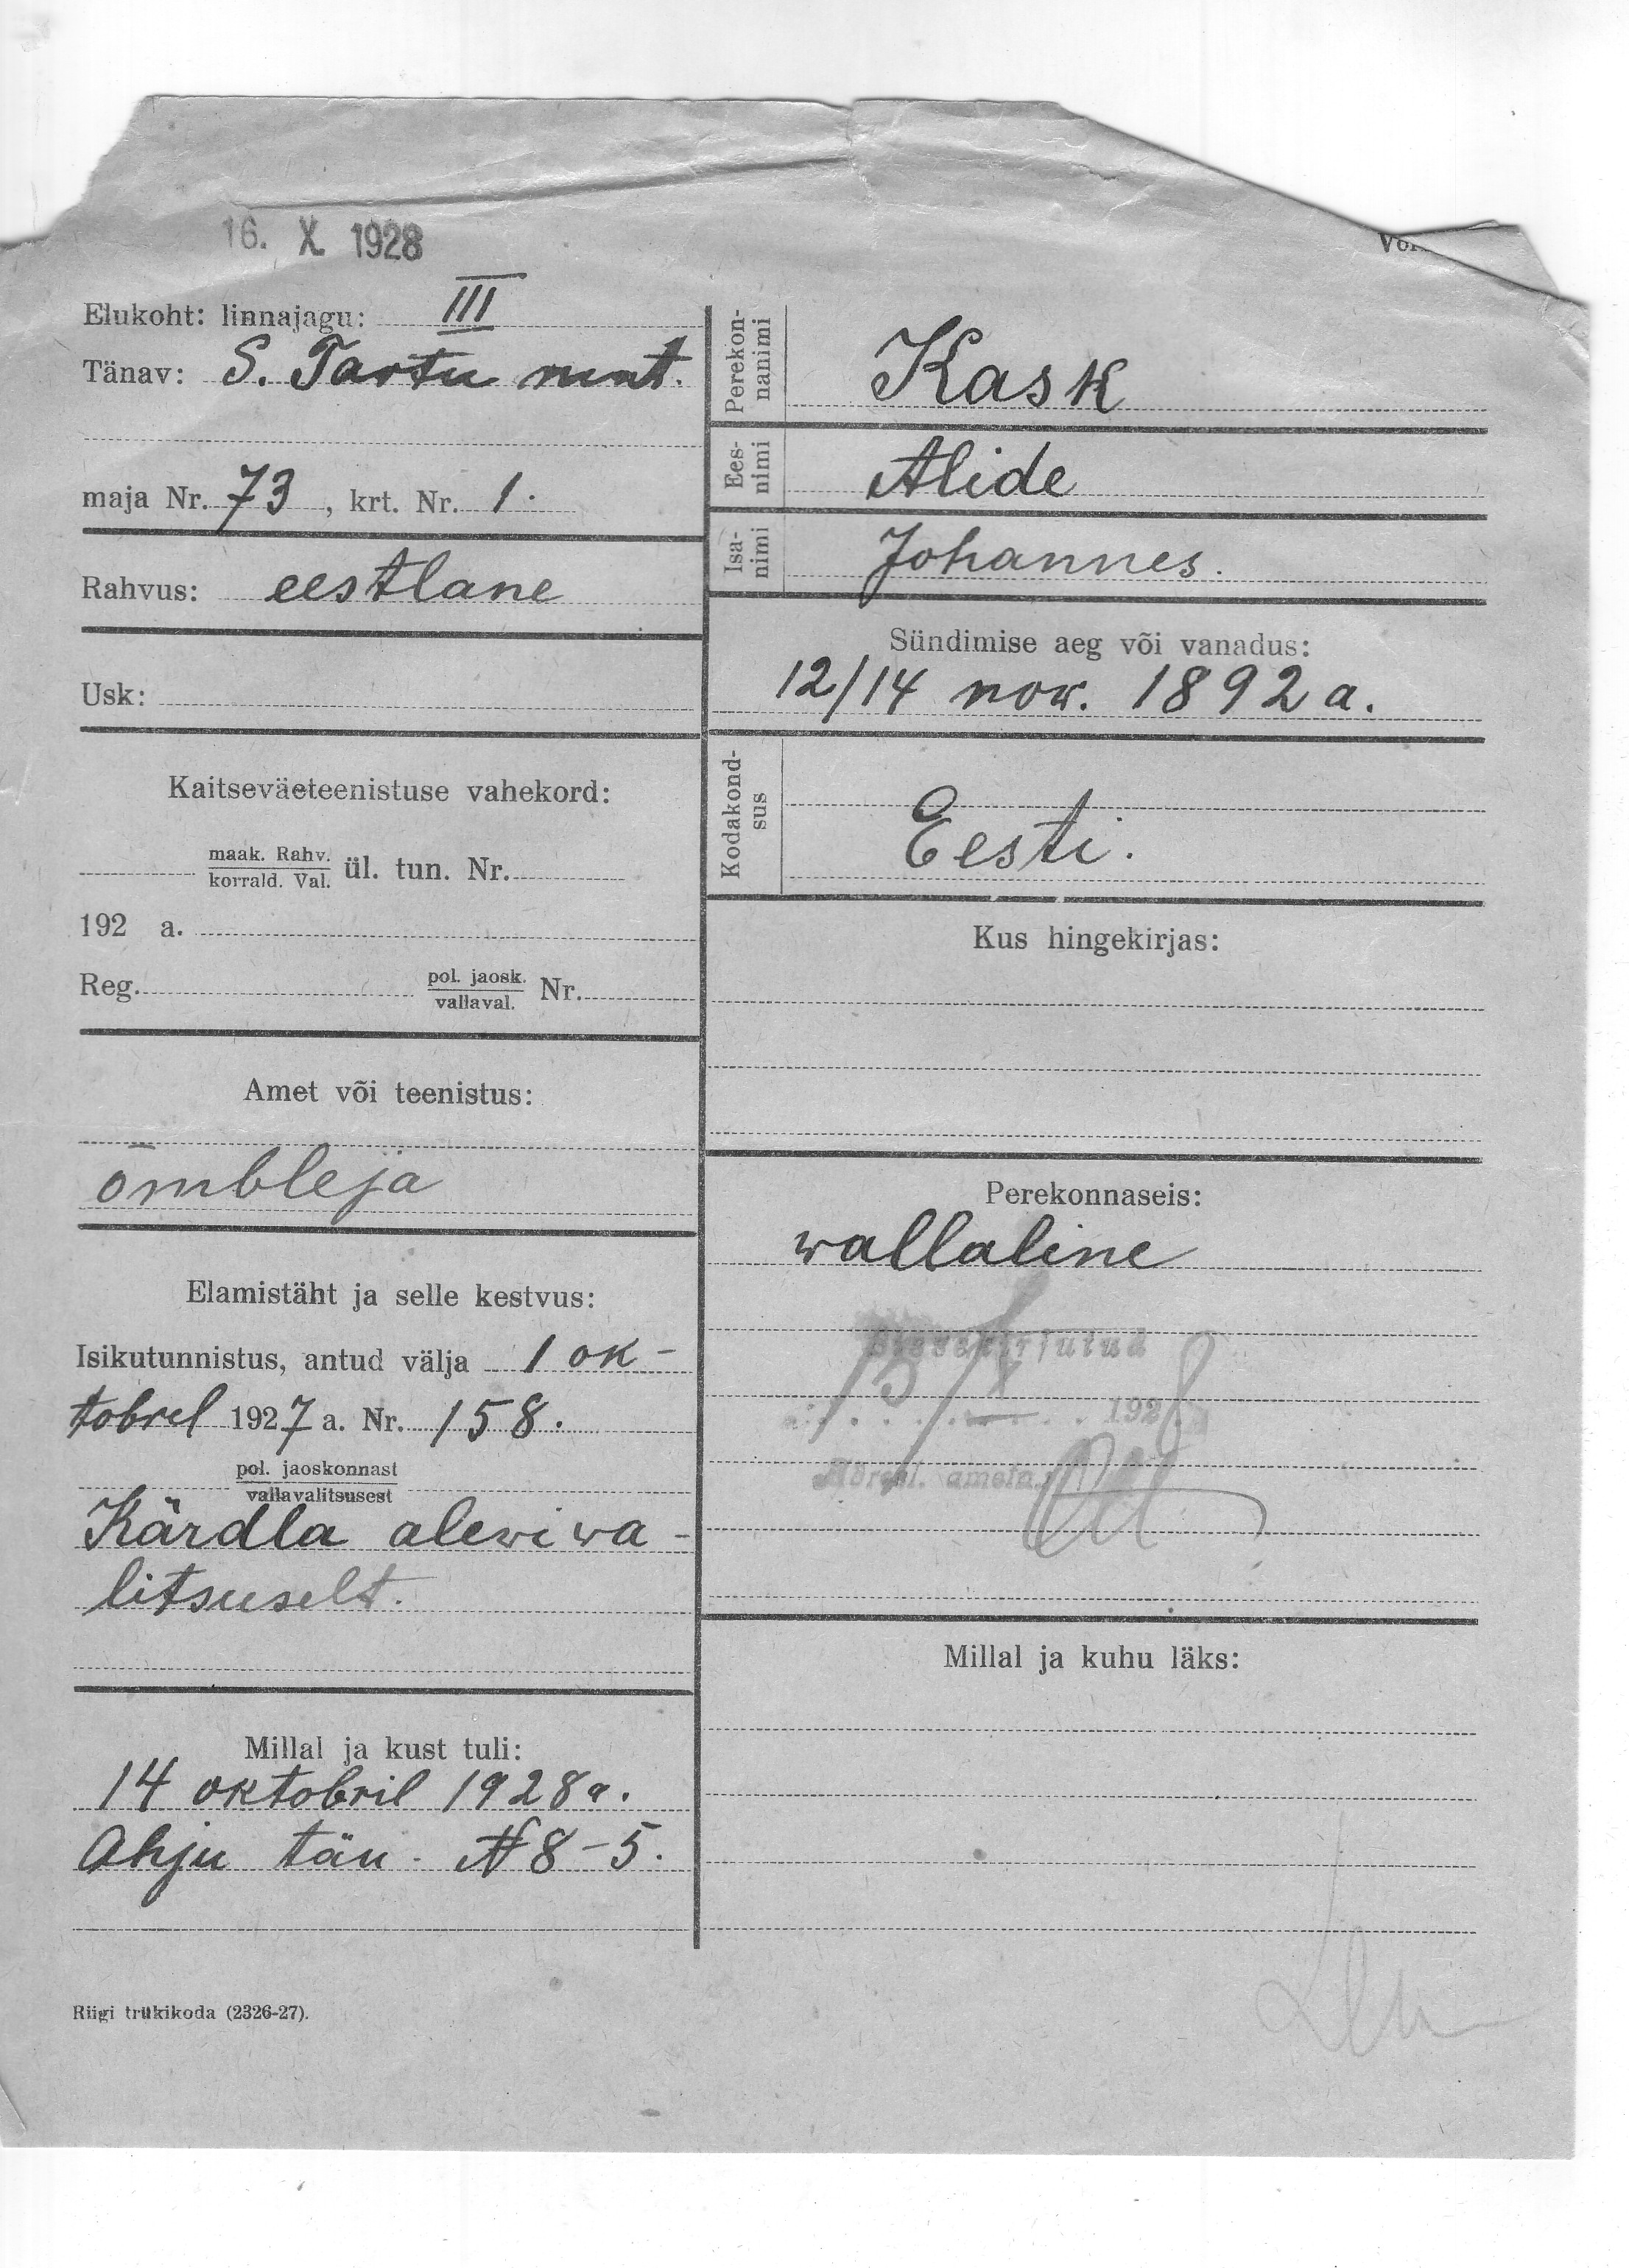 16. X 1928
Elukoht: linnajagu: III
Tänav: S. Tartu mnt.
maja Nr. 73, krt. Nr. 1.
Rahvus: eestlane
Usk:
Kaitseväeteenistuse vahekord:
maak. Rahv.
korrald. Val. ül. tun. Nr.
192 a.
Reg. pol. jaosk.
vallaval. Nr.
Amet või teenistus:
õmbleja
Elamistäht ja selle kestvus:
Isikutunnistus, antud välja 1 ok-
tobrel 1927 a. Nr. 158.
pol. jaoskonnast
vallavalitsusest
Kärdla alewiwa-
litsuselt.
Millal ja kust tuli:
14 oktobril 1928 a.
Ahju tän. N 8-5.
Riigi trükikoda (2326-27).
Perekon-
nanimi
Kask
Ees-
nimi
Alide
Isa-
nimi
Johannes.
Sündimise aeg või vanadus:
12/14 now. 1892 a.
Kodakond-
sus
Eesti.
Kus hingekirjas:
Perekonnaseis:
wallaline
Sissekirjutud
15/X 1928
Adressl. ametn.
Millal ja kuhu läks: